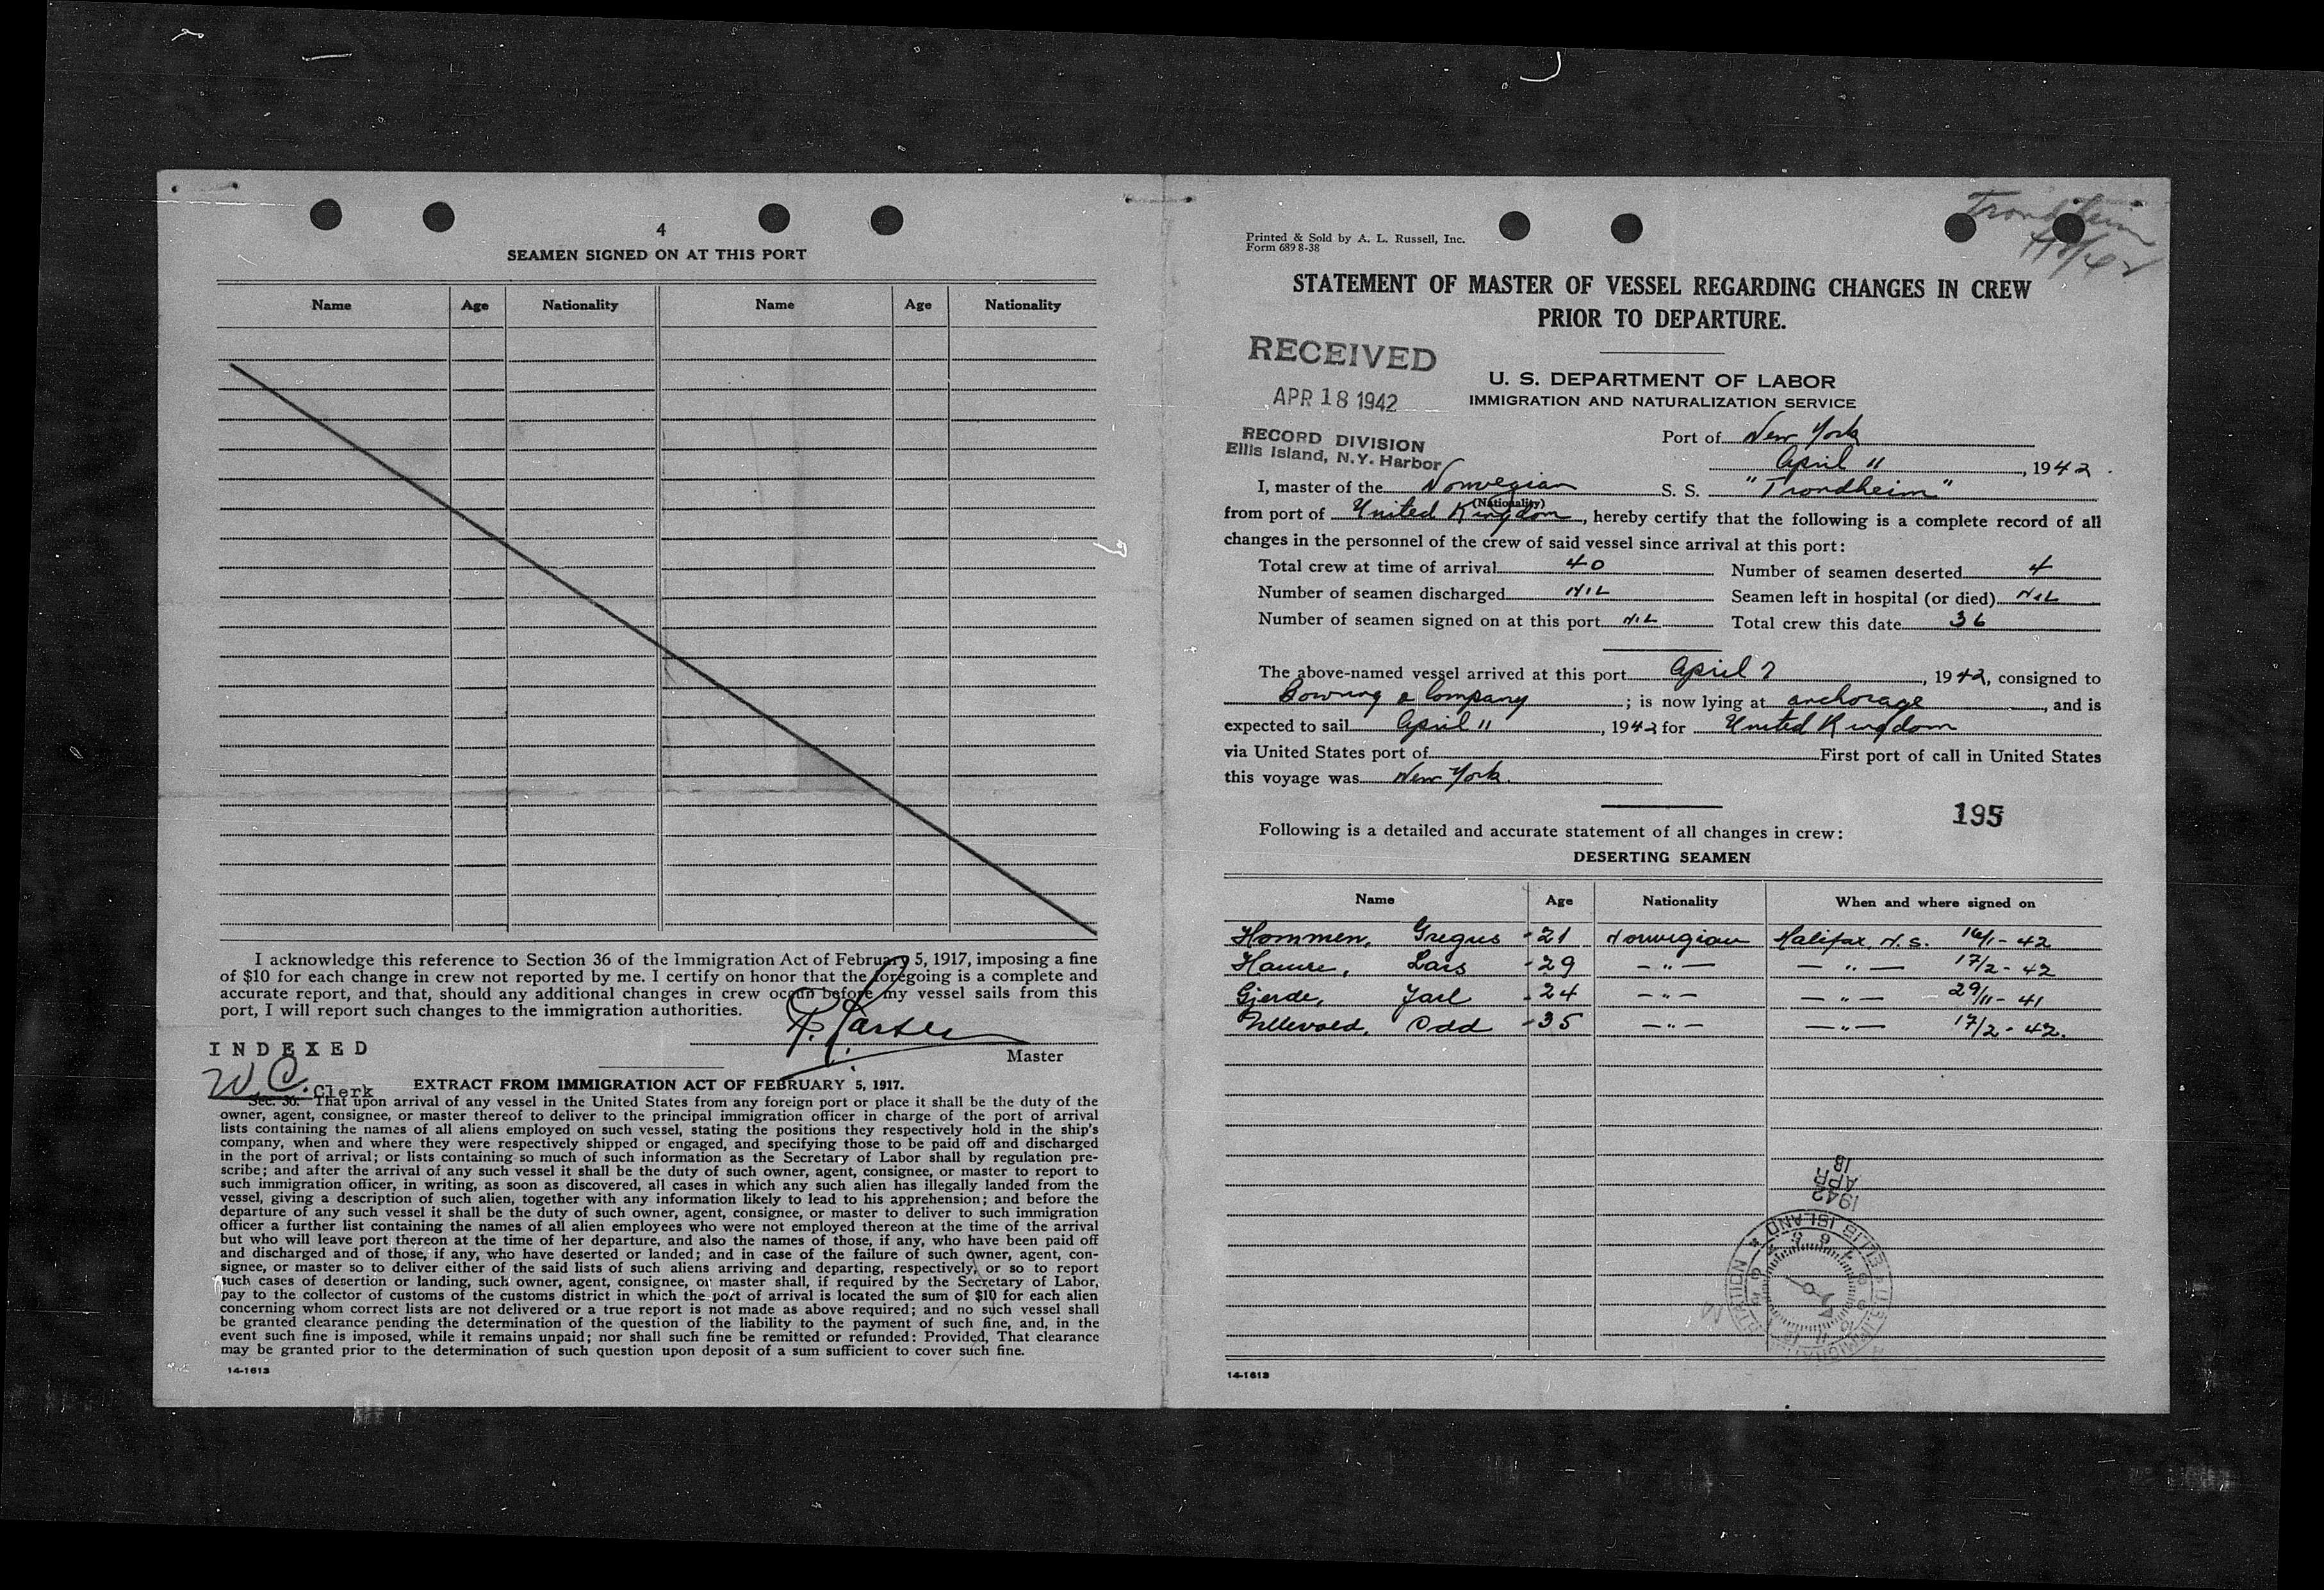 4
SEAMEN SIGNED ON AT THIS PORT
Name Age Nationality Name Age Nationality
I acknowledge this reference to Section 36 of the Immigration Act of February 5, 1917, imposing a fine
of $10 for each change in crew not reported by me. I certify on honor that the foregoing is a complete and
accurate report, and that, should any additional changes in crew occur before my vessel sails from this
port, I will report such changes to the immigration authorities.
Master
INDEXED
W.C. Clerk
EXTRACT FROM IMMIGRATION ACT OF FEBRUARY 5, 1917.
Sec. 36. That upon arrival of any vessel in the United States from any foreign port or place it shall be the duty of the
owner, agent, consignee, or master thereof to deliver to the principal immigration officer in charge of the port of arrival
lists containing the names of all aliens employed on such vessel, stating the positions they respectively hold in the ship's
company, when and where they were respectively shipped or engaged, and specifying those to be paid off and discharged
in the port of arrival; or lists containing so much of such information as the Secretary of Labor shall by regulation pre-
scribe; and after the arrival of any such vessel it shall be the duty of such owner, agent, consignee, or master to report to
such immigration officer, in writing, as soon as discovered, all cases in which any such alien has illegally landed from the
vessel, giving a description of such alien, together with any information likely to lead to his apprehension; and before the
departure of any such vessel it shall be the duty of such owner, agent, consignee, or master to deliver to such immigration
officer a further list containing the names of all alien employees who were not employed thereon at the time of the arrival
but who will leave port thereon at the time of her departure, and also the names of those, if any, who have been paid off
and discharged and of those, if any, who have deserted or landed; and in case of the failure of such owner, agent, con-
signee, or master so to deliver either of the said lists of such aliens arriving and departing, respectively, or so to report
such cases of desertion or landing, such owner, agent, consignee, or master shall, if required by the Secretary of Labor,
pay to the collector of customs of the customs district in which the port of arrival is located the sum of $10 for each alien
concerning whom correct lists are not delivered or a true report is not made as above required; and no such vessel shall
be granted clearance pending the determination of the question of the liability to the payment of such fine, and, in the
event such fine is imposed, while it remains unpaid; nor shall such fine be remitted or refunded: Provided, That clearance
may be granted prior to the determination of such question upon deposit of a sum sufficient to cover such fine.
14-1613
Trondheim
Printed & Sold by A. L. Russell, Inc.
Form 689 8-38
STATEMENT OF MASTER OF VESSEL REGARDING CHANGES IN CREW
PRIOR TO DEPARTURE.
RECEIVED
APR 18 1942
RECORD DIVISION
Ellis Island, N.Y. Harbor
U. S. DEPARTMENT OF LABOR
IMMIGRATION AND NATURALIZATION SERVICE
Port of New York
April 11, 1942.
I, master of the Norwegian S. S. "Trondheim"
(Nationality)
from port of United Kingdom, hereby certify that the following is a complete record of all
changes in the personnel of the crew of said vessel since arrival at this port:
Total crew at time of arrival 40 Number of seamen deserted 4
Number of seamen discharged NIL Seamen left in hospital (or died) NIL
Number of seamen signed on at this port NIL Total crew this date 36
The above-named vessel arrived at this port April 7, 1942, consigned to
Bowring & Company; is now lying at anchorage, and is
expected to sail April 11, 1942 for United Kingdom
via United States port of First port of call in United States
this voyage was New York.
195
Following is a detailed and accurate statement of all changes in crew:
DESERTING SEAMEN
Name Age Nationality When and where signed on
Hommen, Gregus - 21 Norwegian Halifax N.S. 16/1 - 42
Hamre, Lars - 29 — " — — " — 17/2 - 42
Gjerde, Jarl - 24 — " — — " — 29/11 - 41
Odd - 35 — " — — " — 17/2 - 42.
1942
APR
18
14-1613